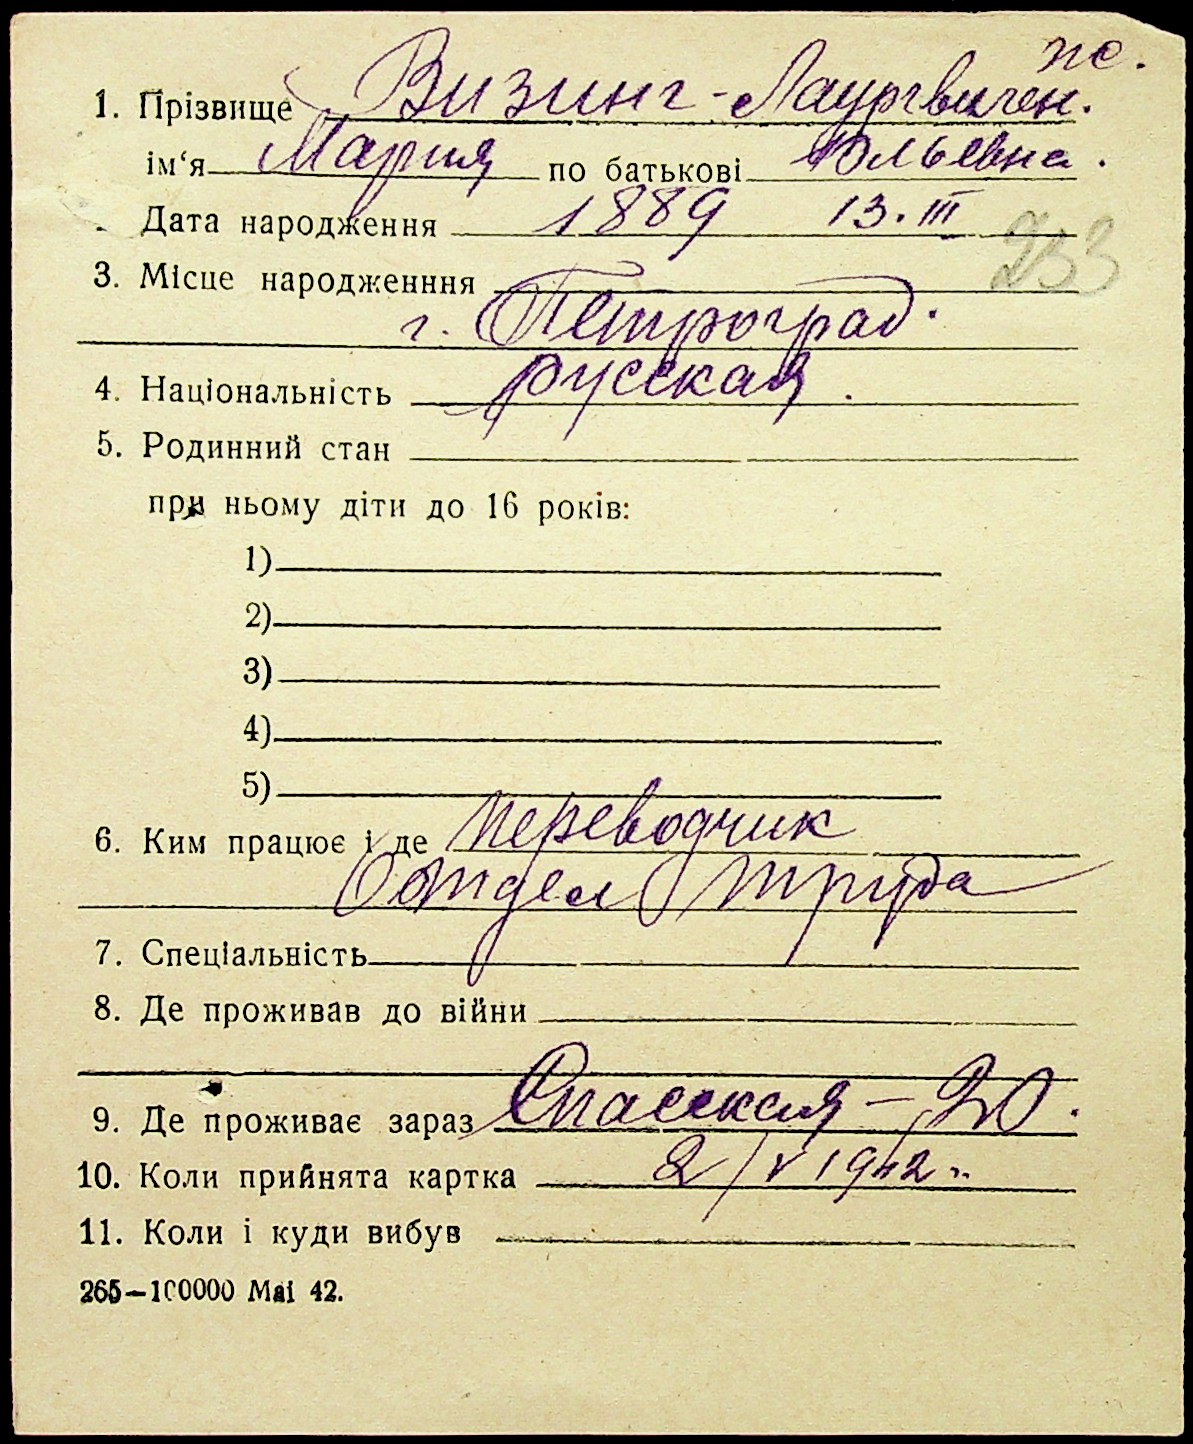 пс.
1. Прізвище Визинг-Лаургвиген.
ім‘я Мария по батькові Юльевна.
Дата народження 1889 13.III
233
3. Місце народженння
г. Петроград.
4. Національність русская.
5. Родинний стан
при ньому діти до 16 років:
1)
2)
3)
4)
5)
6. Ким працює і де переводчик
Отдел труда
7. Спеціальність
8. Де проживав до війни
9. Де проживає зараз Спасская – 20.
10. Коли прийнята картка 2/V 1942 г.
11. Коли і куди вибув
265–100000 Маі 42.